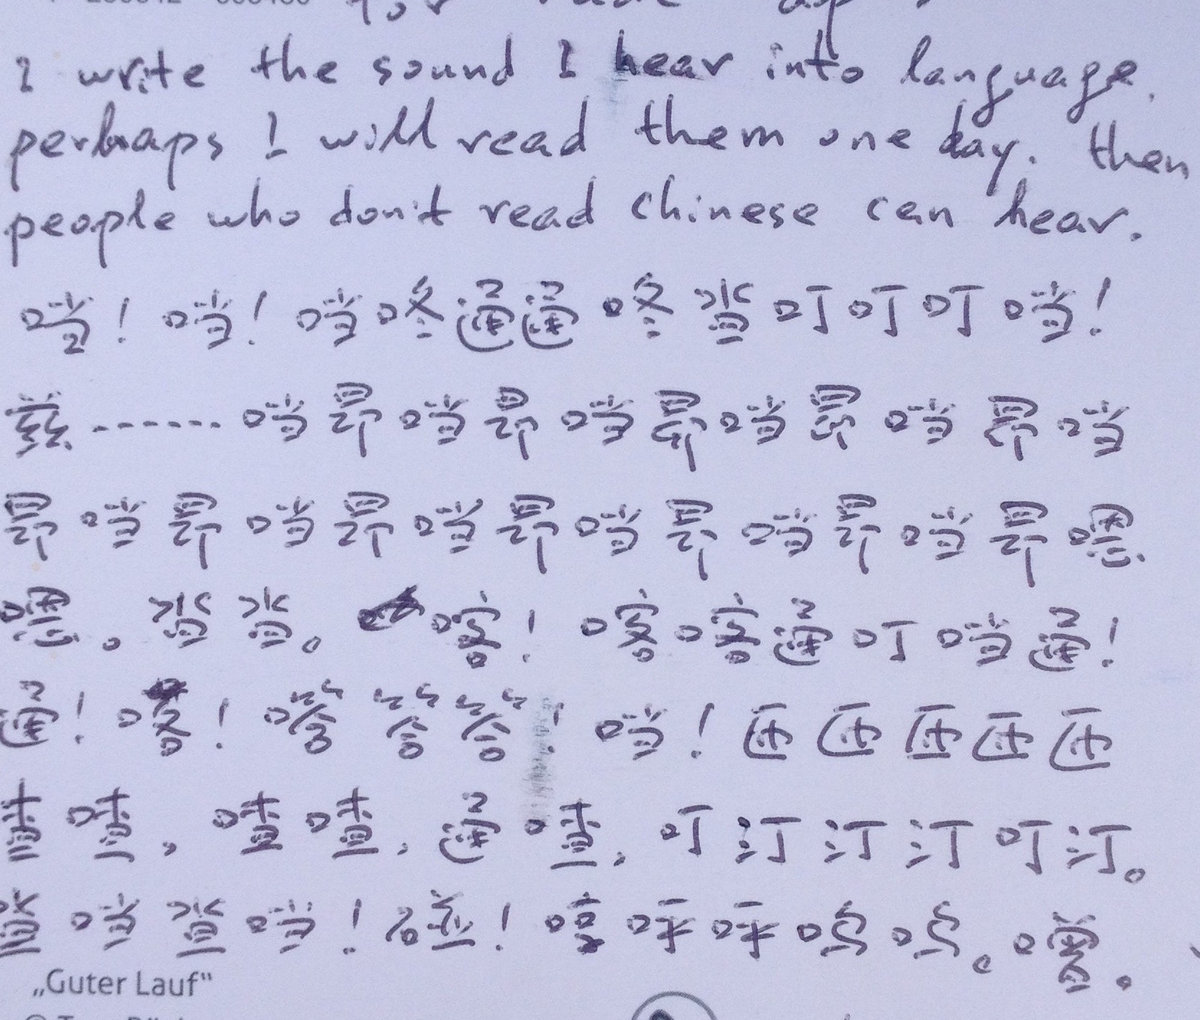 I write the sound I hear into language.
perhaps I will read them one day. then
people who don't read chinese can hear.
噹！噹！噹咚通通咚當叮叮叮噹！
兹……噹昂噹昂噹昂噹昂噹昂噹
昂噹昂噹昂噹昂噹昂噹昂噹昂嗯
嗯。當當。喀！喀喀通叮噹通！
通！喀！嗒答答！噹！匝匝匝匝匝
喳喳，喳喳，通喳，叮汀汀汀叮汀。
當噹當噹！碰！哼呼呼嗚嗚。
„Guter Lauf“